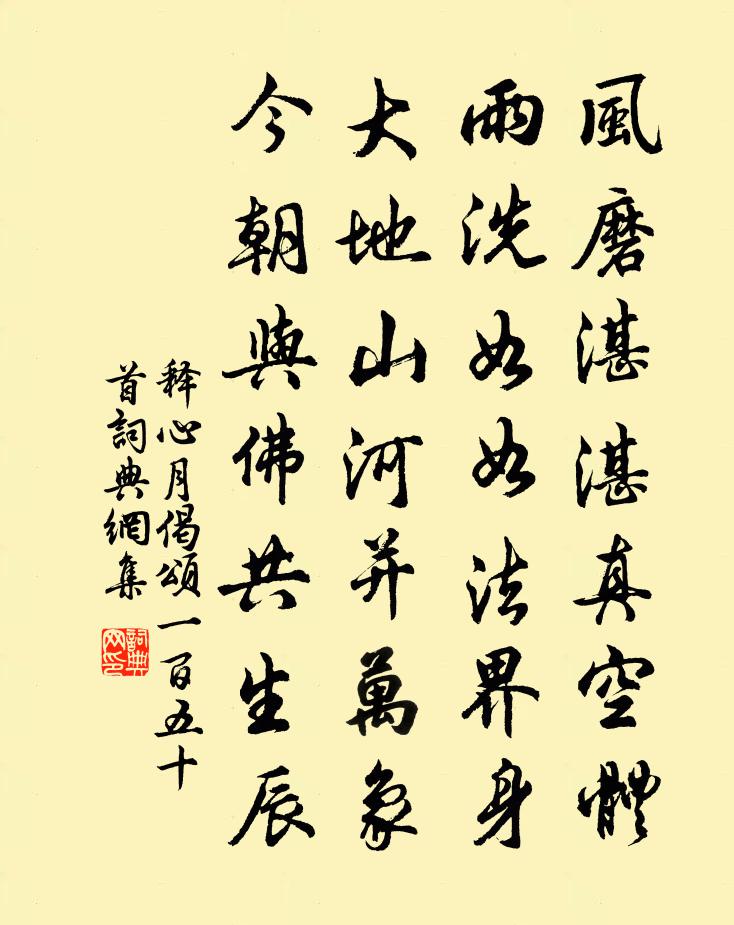 風磨湛湛真空體
雨洗如如法界身
大地山河并萬象
今朝與佛共生辰
释心月偈頌一百五十
首詞典網集
詞典网印